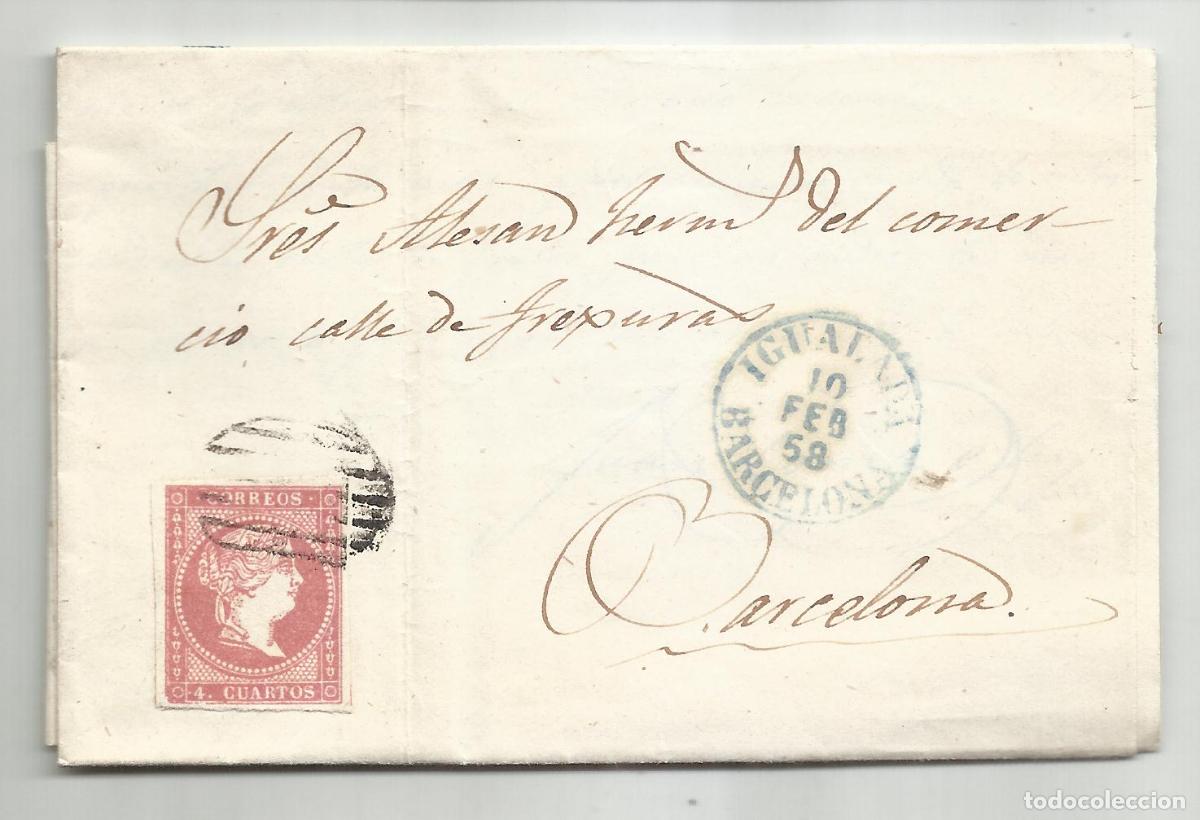 Sres Alesan herms del comer-
cio calle de frexuras
IGUALADA
10
FEB
58
BARCELONA
CORREOS
4. CUARTOS
Barcelona.
todocoleccion